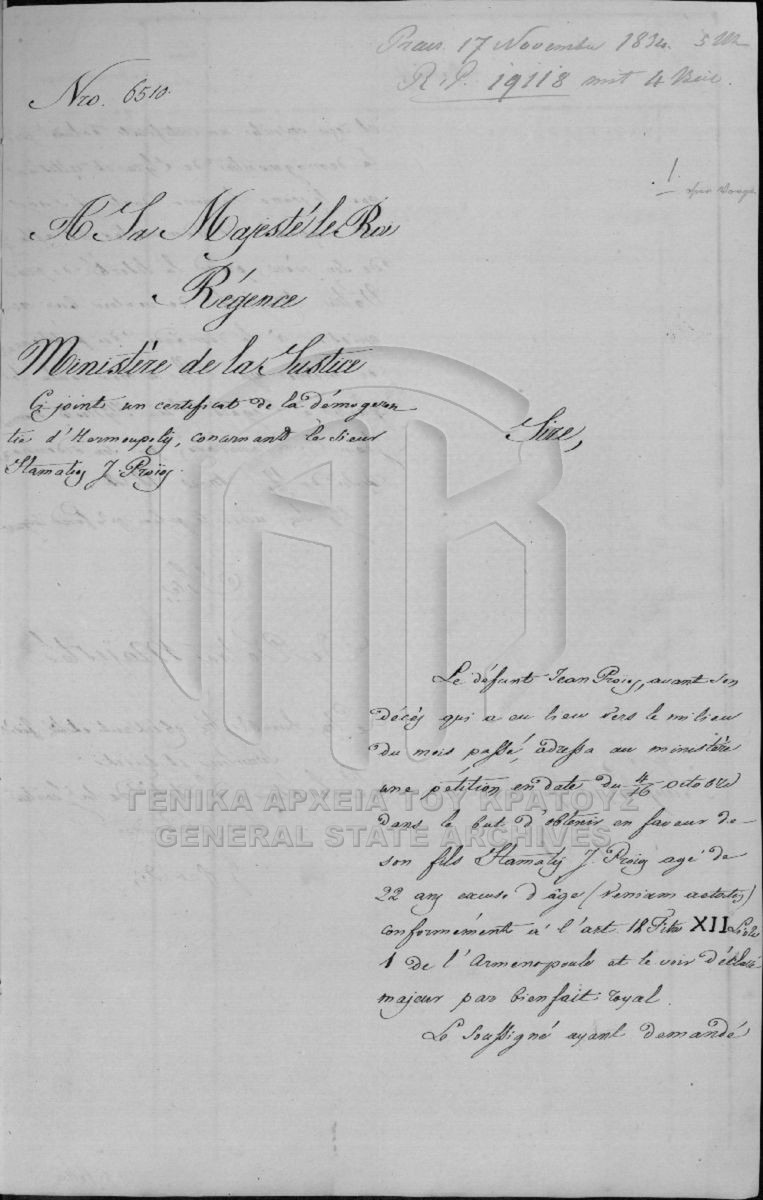 Nro. 6510.
Praes. 17 Novembre 1834.
R. P. 19118 mit 4 Beil.
A Sa Majesté le Roi
Régence
Ministère de la Justice
Ci joint un certificat de la démogeron
tie d'Hermoupolis, concernant le sieur
Stamatis J. Proïos.
Sire,
Le défunt Jean Proios, avant son
décès qui a eu lieu vers le milieu
du mois passé, adressa au ministère
une pétition en date du 4/16 octobre
dans le but d'obtenir en faveur de
son fils Stamatis J. Proios agé de
22 ans excuse d'âge (veniam aetatis)
conformément à l'art. 12 Titre XII Livre
1 de l'Armenopoule et le voir déclaré
majeur par bienfait royal.
Le soussigné ayant demandé
ΓΕΝΙΚΑ ΑΡΧΕΙΑ ΤΟΥ ΚΡΑΤΟΥΣ
GENERAL STATE ARCHIVES